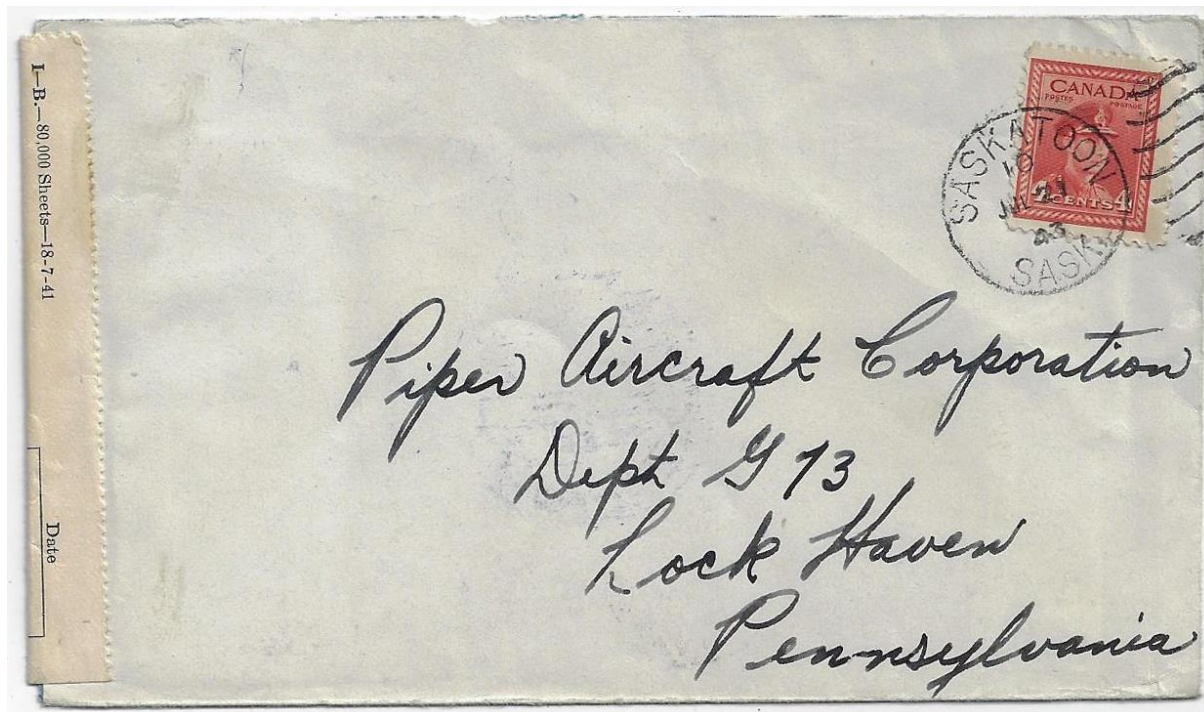 I—B.—80,000 Sheets—18-7-41
Date
CANADA
POSTES POSTAGE
4 CENTS 4
SASKATOON
10
JUL 21
43
SASK
Piper Aircraft Corporation
Dept G 73
Lock Haven
Pennsylvania